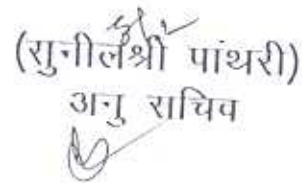 (सुनीलश्री पांथरी)
अनु सचिव